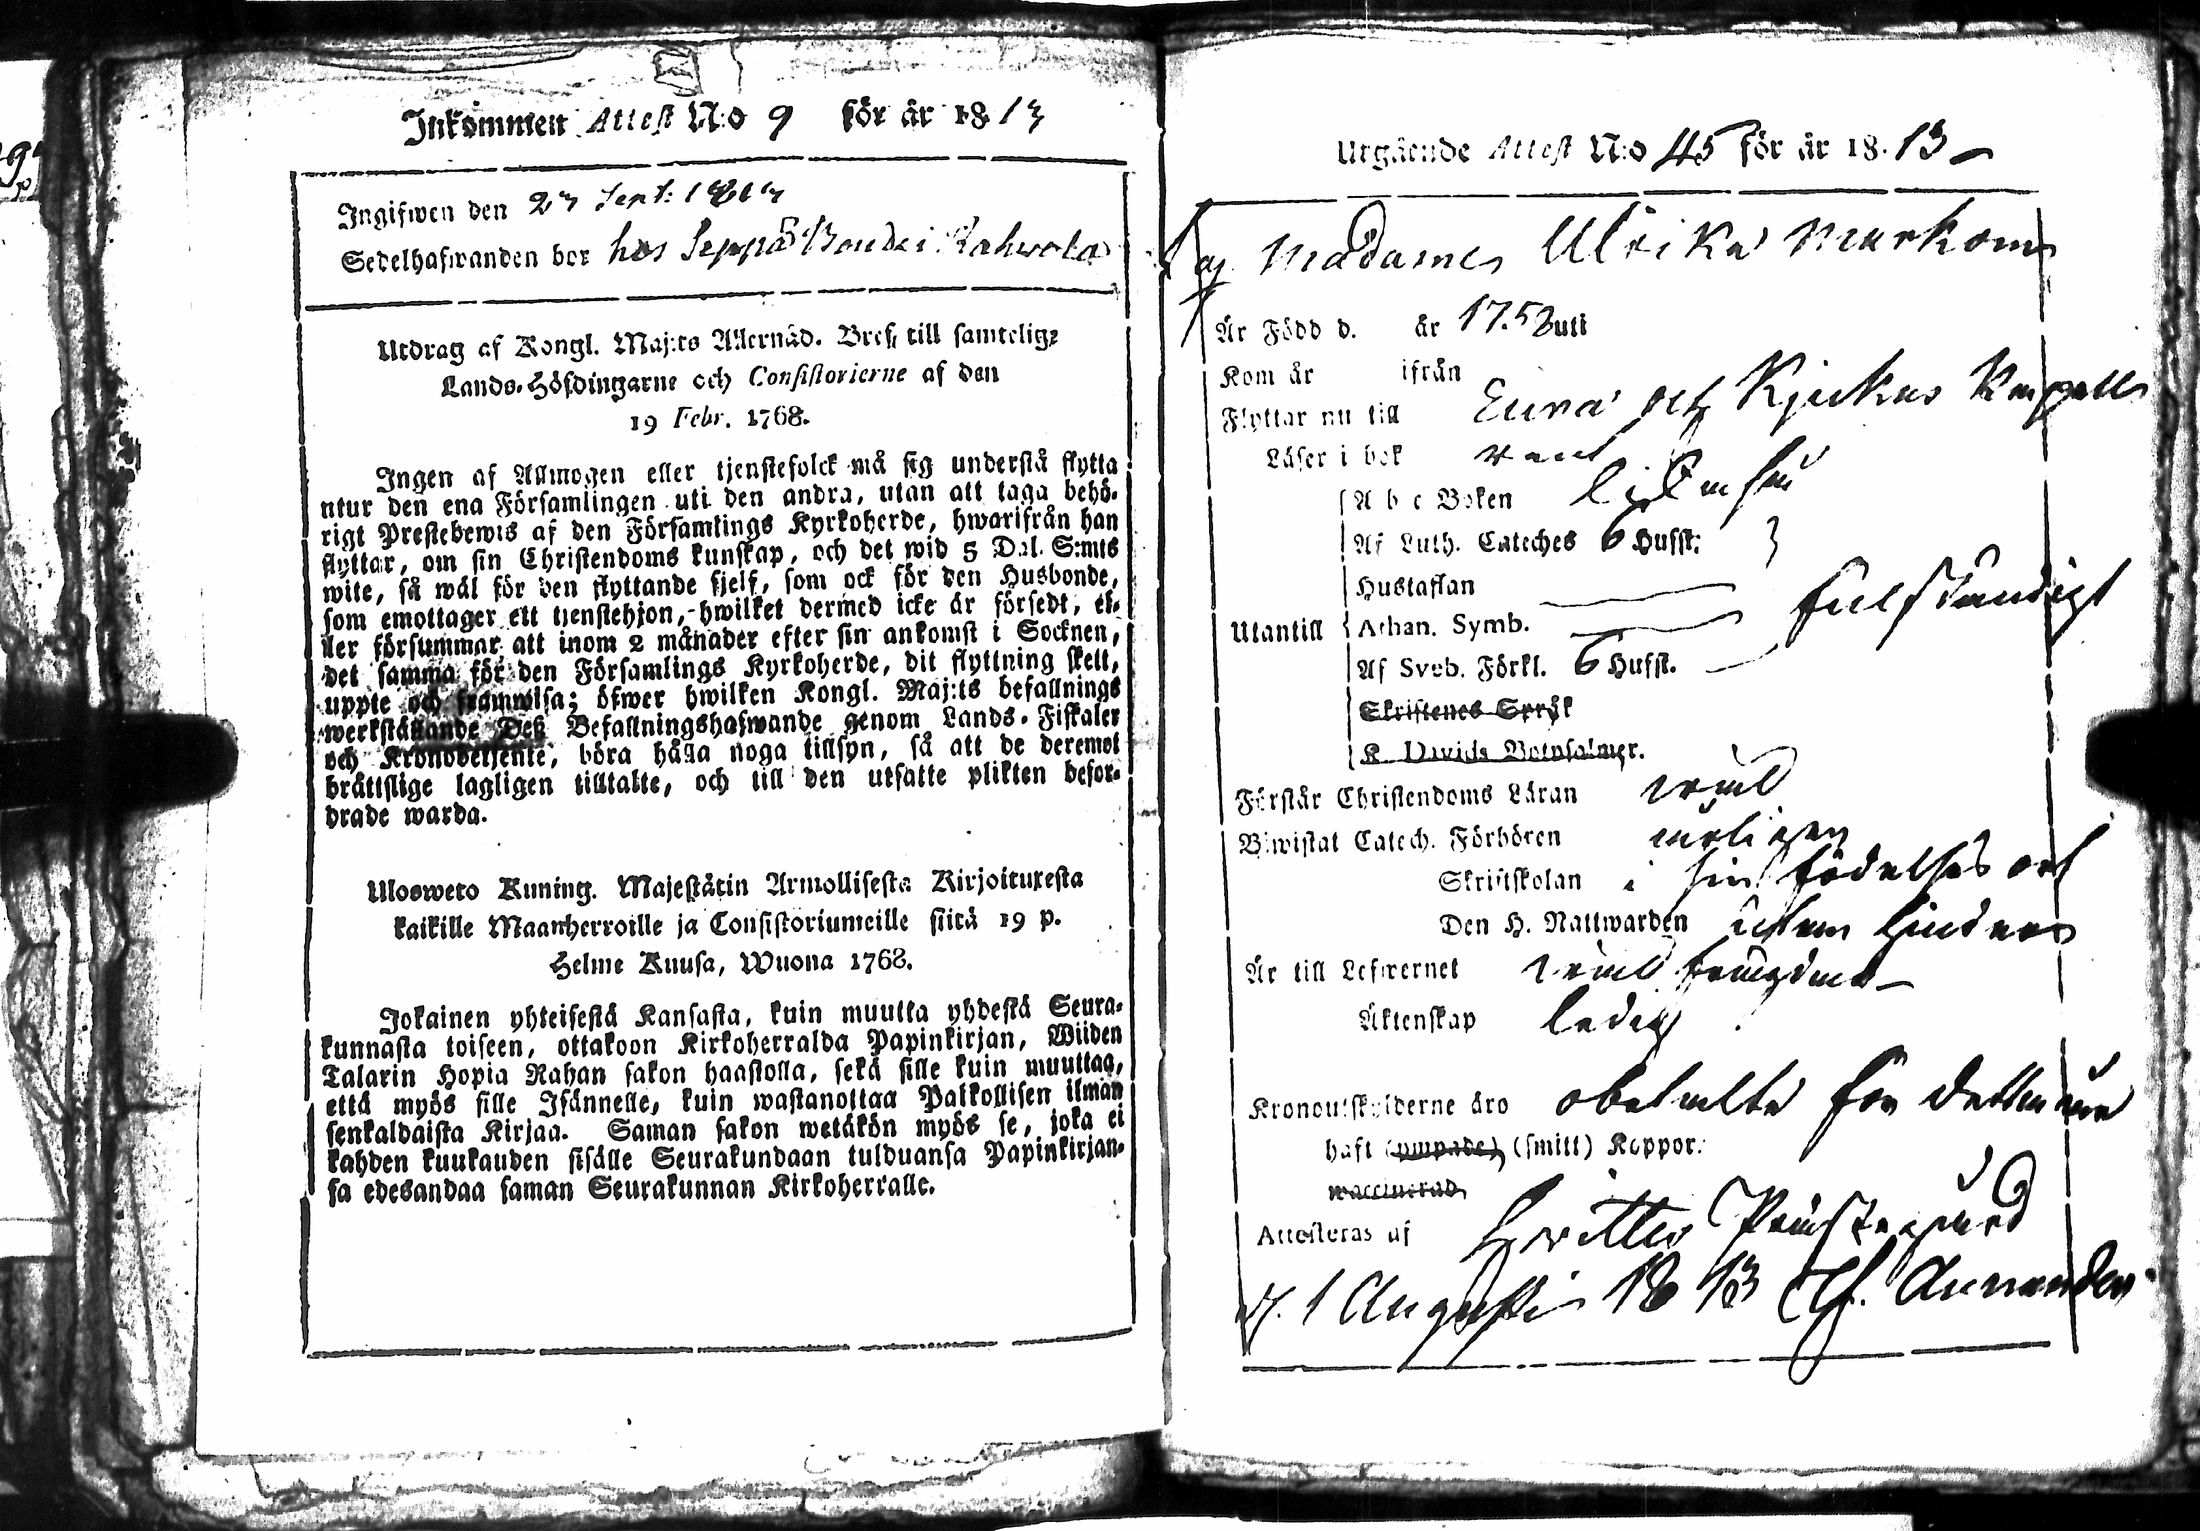 Inkommen Attest N:o 9 för år 1813
Ingifwen den 27 Sept: 1813
Sedelhafwanden bor hos Seppä Bonde i Kahwola
Utdrag af Kongl. Maj:ts Allernåd. Bref, till samtelige
Lands-Höfdingarne och Consistorierne af den
19 Febr. 1768.
Ingen af Allmogen eller tjenstefolck må sig understå flytta
utur den ena Församlingen uti den andra, utan att taga behö-
rigt Prestebewis af den Församlings Kyrkoherde, hwarifrån han
flyttar, om sin Christendoms kunskap, och det wid 5 Dal. S:mts
wite, så wäl för den flyttande sjelf, som ock för den Husbonde,
som emottager ett tjenstehjon, hwilket dermed icke är försedt, el-
ler försummar att inom 2 månader efter sin ankomst i Socknen,
det samma för den Församlings Kyrkoherde, dit flyttning skett,
uppte och framwisa; öfwer hwilken Kongl. Maj:ts befallnings
werkställande Deß Befallningshafwande genom Lands-Fiskaler
och Kronobetjente, böra hålla noga tillsyn, så att de deremot
bråttslige lagligen tilltalte, och till den utsatte plikten befor-
drade warda.
Ulosweto Kuning. Majestätin Armollisesta Kirjoituxesta
kaikille Maanherroille ja Consistoriumeille siitä 19 p.
Helme Kuusa, Wuona 1768.
Jokainen yhteisestä Kansasta, kuin muutta yhdestä Seura-
kunnasta toiseen, ottakoon Kirkoherralda Papinkirjan, Wiiden
Talarin Hopia Rahan sakon haastolla, sekä sille kuin muuttaa,
että myös sille Isännelle, kuin wastanottaa Palkollisen ilman
senkaldaista Kirjaa. Saman sakon wetäkön myös se, joka ei
kahden kuukauden sisälle Seurakundaan tulduansa Papinkirjan-
sa edesandaa saman Seurakunnan Kirkoherralle.
Utgående Attest N:o 45 för år 1813
Madames Ulrika
Är Född d. år 1753 uti
Kom år ifrån
Flyttar nu till Eura och Kjukas Kapell
Läser i bok rent
A b c Boken
Af Luth. Cateches 6 Hufst:
Hustaflan
Utantill Athan. Symb. fulständigt
Af Sveb. Förkl. 6 Hufst.
Skriftenes Språk
K. Davids Botpsalmer.
Förstår Christendoms Läran wäl
Biwistat Catech. Förhören årligen
Skriftskolan i sin födelses ort
Den H. Nattwarden utan hinder
Är till Lefwernet wäl frägdad
Äktenskap ledig
Kronoutskylderne äro obetalte för detta år
haft (ympade) (smitt) Koppor.
waccinerad
Attesteras af Hvittis Prästegård
d. 1 Augusti 1813